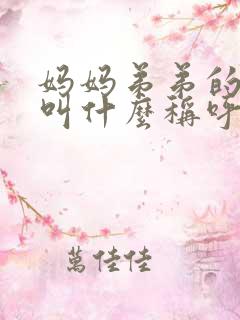 妈妈弟弟的
叫什麼稱呼
萬佳佳